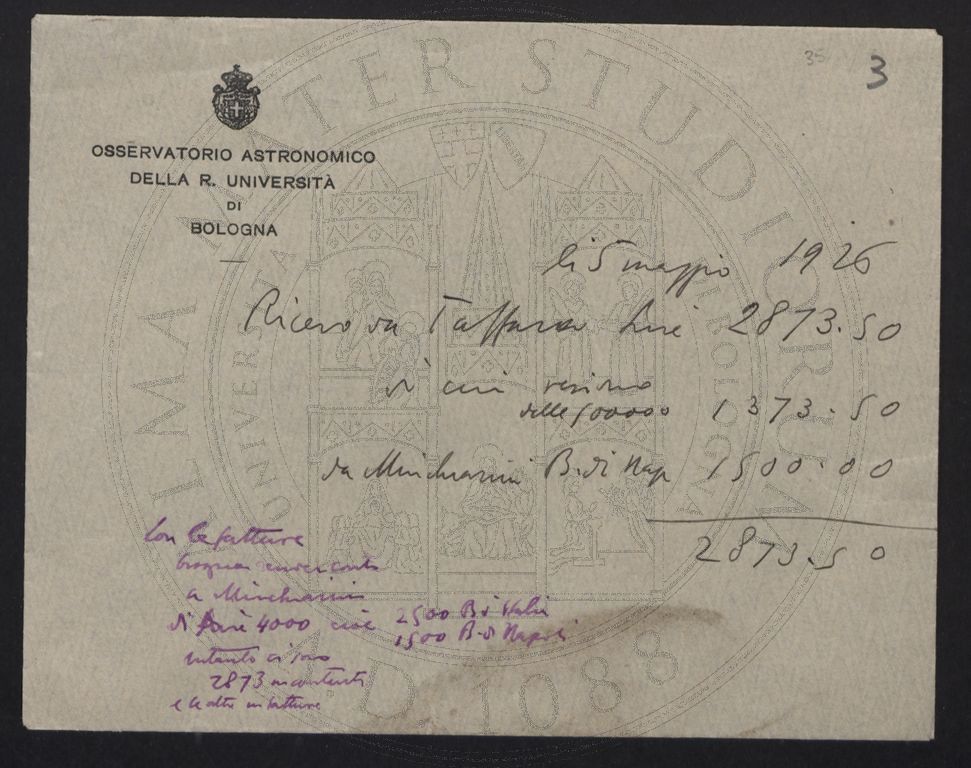 35
3
OSSERVATORIO ASTRONOMICO
DELLA R. UNIVERSITÀ
DI
BOLOGNA
li 5 maggio 1926
Ricevo da Taffara Lire 2873.50
di cui residuo
delle 500000 1373.50
da Minchiarini B. di Nap 1500.00
2873.50
Con le fatture
bisogna render conto
a Minchiarini
di Lire 4000 cioè 2500 B. d'Italia
1500 B. di Napoli
intanto ci sono
2873 in contanti
e le altre in fatture
ALMA MATER STUDIORUM
UNIVERSITA
BOLOGNA
A.D. 1088